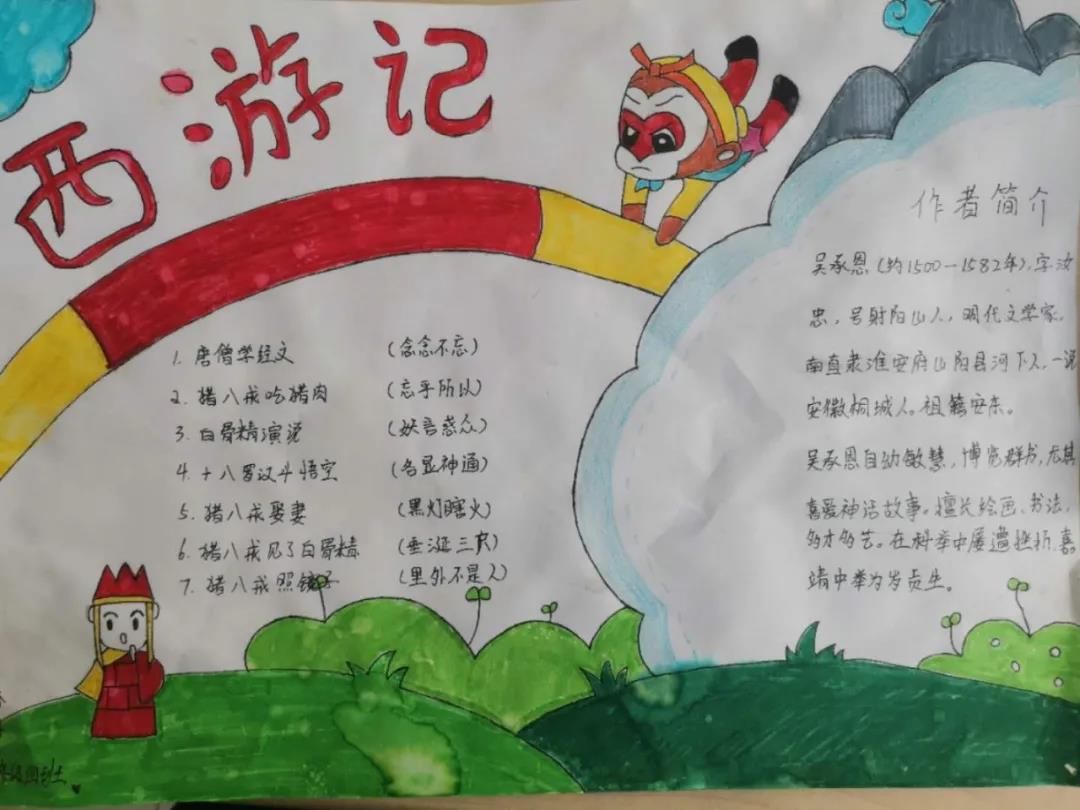 西游记
1. 唐僧学经文 (念念不忘)
2. 猪八戒吃猪肉 (忘乎所以)
3. 白骨精演说 (妖言惑众)
4. 十八罗汉斗悟空 (各显神通)
5. 猪八戒娶妻 (黑灯瞎火)
6. 猪八戒见了白骨精 (垂涎三尺)
7. 猪八戒照镜子 (里外不是人)
作者简介
吴承恩(约1500—1582年),字汝
忠,号射阳山人,明代文学家。
南直隶淮安府山阳县河下人,一说
安徽桐城人。祖籍安东。
吴承恩自幼敏慧,博览群书,尤其
喜爱神话故事。擅长绘画、书法,
多才多艺。在科举中屡遭挫折,嘉
靖中举为岁贡生。